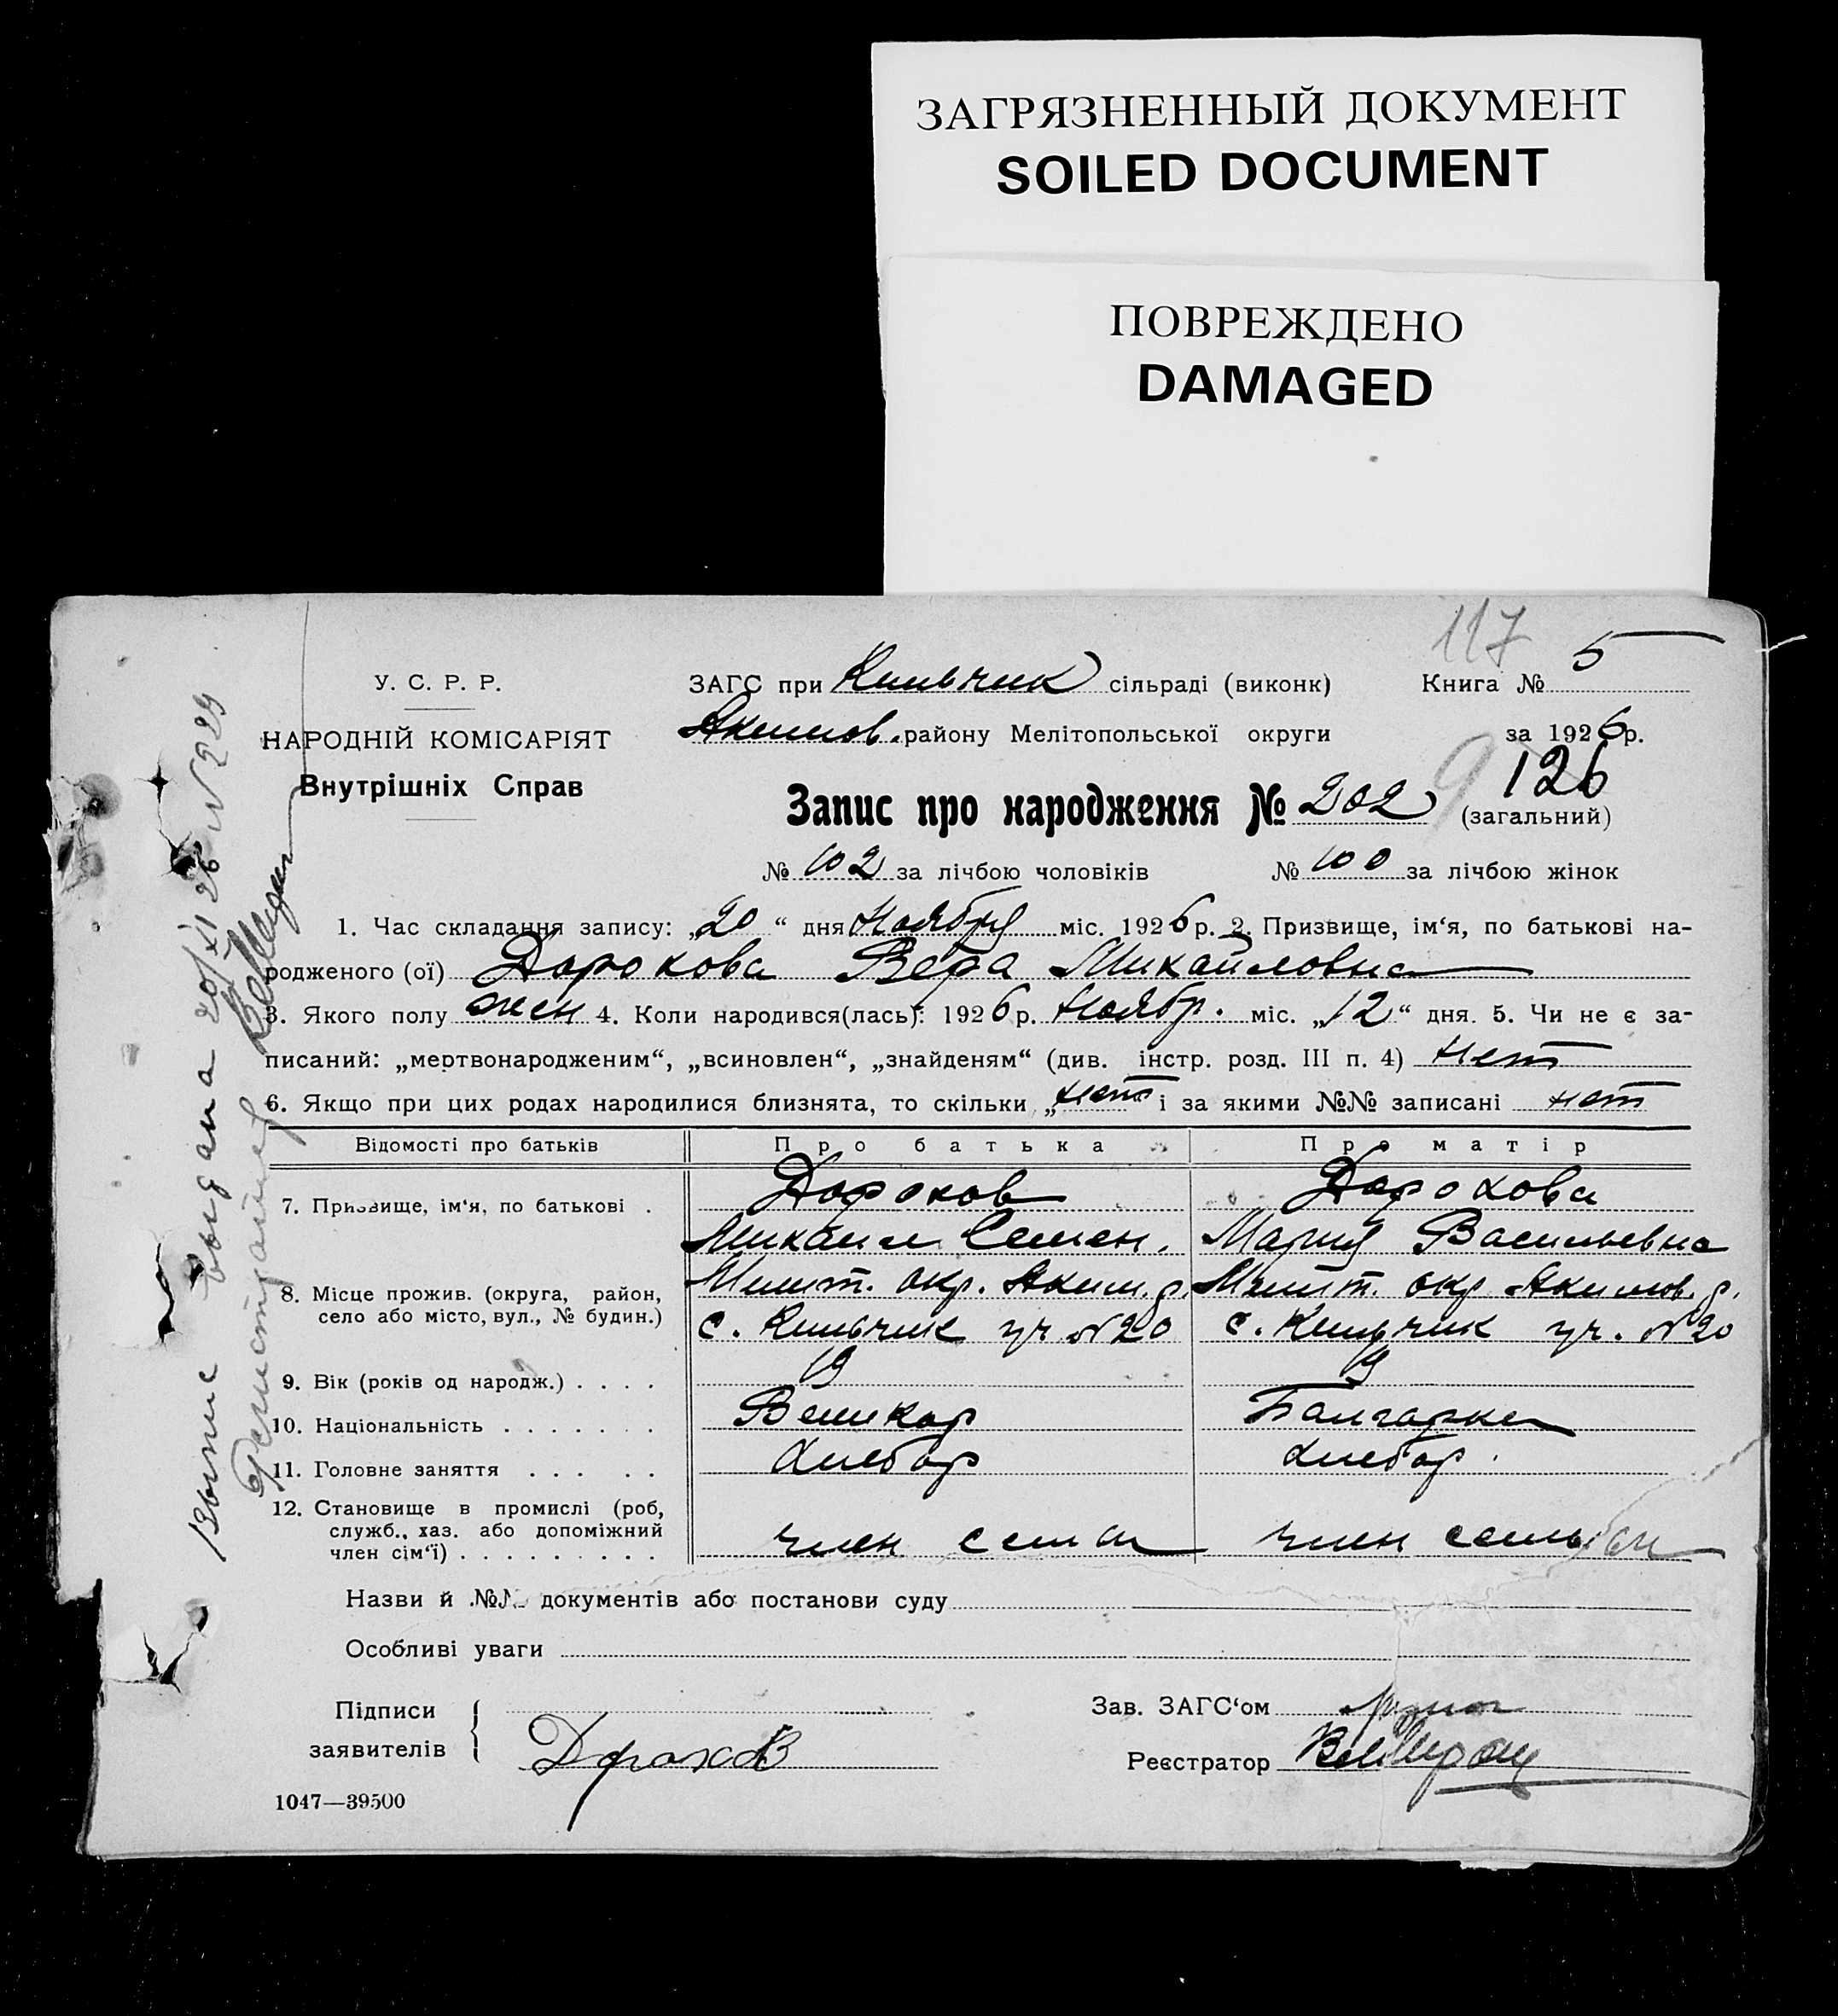 ЗАГРЯЗНЕННЫЙ ДОКУМЕНТ
SOILED DOCUMENT
ПОВРЕЖДЕНО
DAMAGED
117
У. С. Р. Р.
НАРОДНІЙ КОМІСАРІЯТ
Внутрішніх Справ
ЗАГС при Кильчик сільраді (виконк) Книга № 5
Акимов. району Мелітопольської округи за 1926 р.
126
Запис про народження № 202 (загальний)
№ 102 за лічбою чоловіків № 100 за лічбою жінок
1. Час складання запису: „20“ дня Ноября міс. 1926 р. 2. Призвище, ім‘я, по батькові на-
родженого (ої) Дорохова Вера Михайловна
3. Якого полу жен 4. Коли народився(лась): 1926 р. Ноябр. міс. „12“ дня. 5. Чи не є за-
писаний: „мертвонародженим“, „всиновлен“, „знайденям“ (див. інстр. розд. III п. 4) нет
6. Якщо при цих родах народилися близнята, то скільки „нет“ і за якими №№ записані нет
Відомості про батьків Про батька Про матір
7. Призвище, ім‘я, по батькові . Дорохов Дорохова
Михаил Семен. Мария Васильевна
8. Місце прожив. (округа, район, Мелит. окр. Аким. р. Мелит. окр. Акимов. р.
село або місто, вул., № будин.) с. Кильчик уч. №20 с. Кильчик уч. №20
9. Вік (років од народж.) . . . . 19 19
10. Національність . . . . . . . Великор Болгарка
11. Головне заняття . . . . . Хлебор Хлебор.
12. Становище в промислі (роб,
служб., хаз. або допоміжний
член сім‘ї) . . . . . . . . . член семьи член семьи
Назви й №№ документів або постанови суду
Особливі уваги
Підписи
заявителів Дорохов
Зав. ЗАГС‘ом
Реєстратор
1047—39500
Выпис выдана 20/XI 26 №229